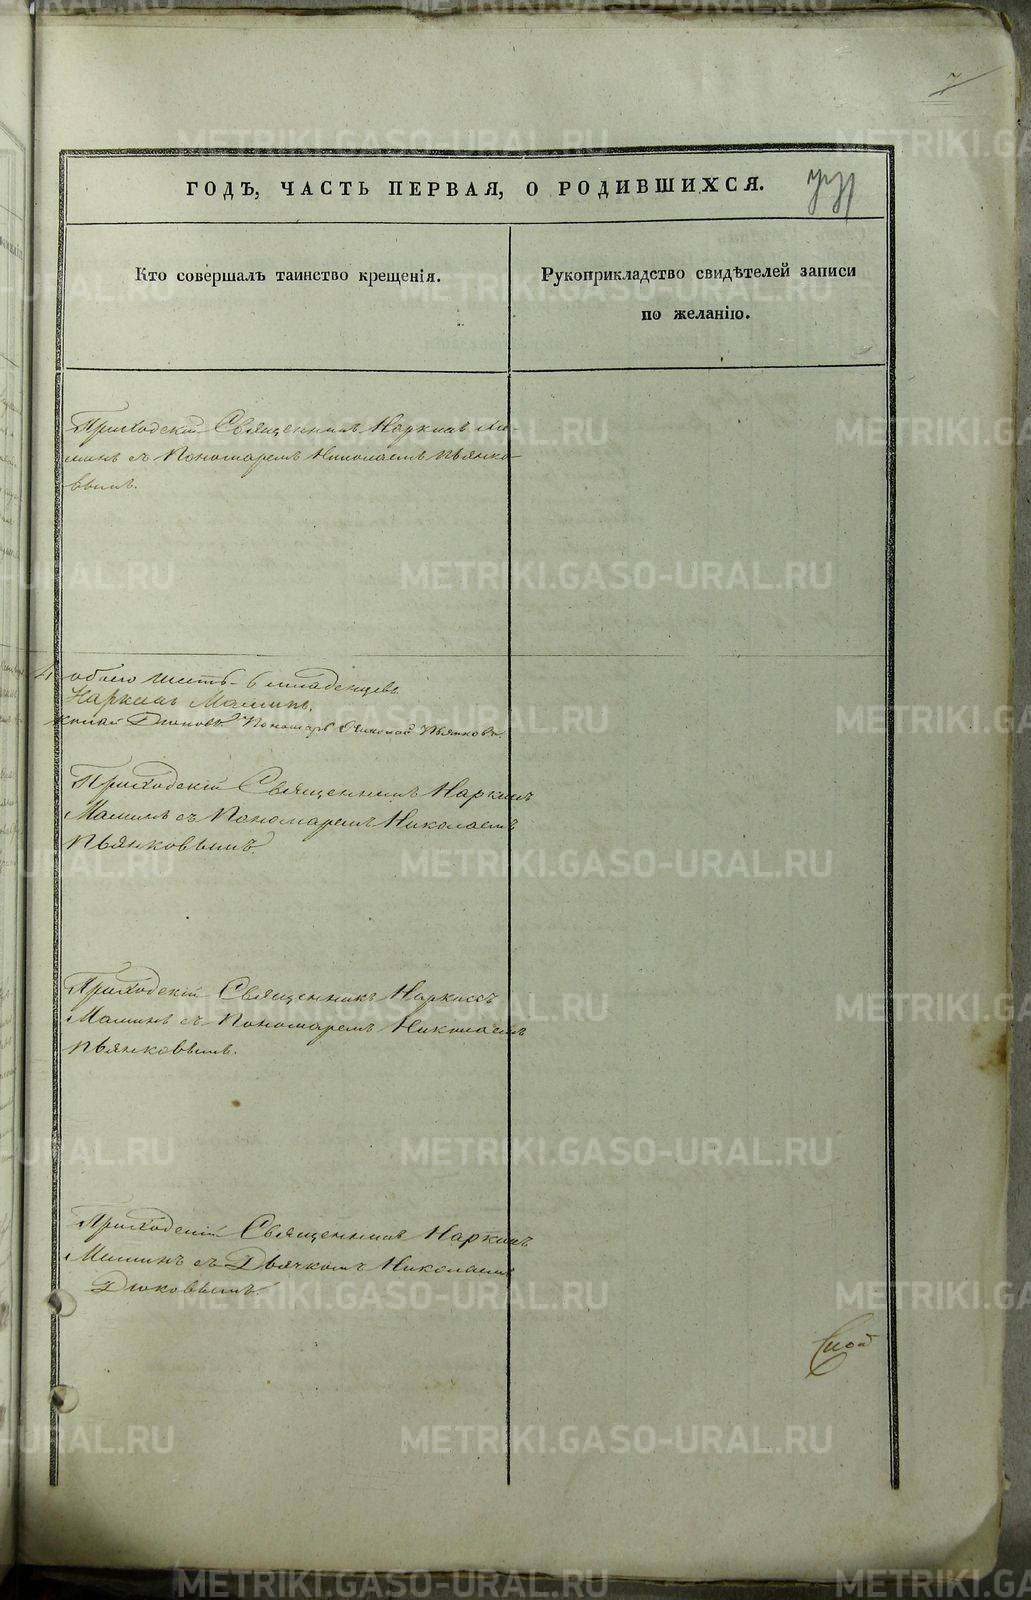 7
ГОДЪ, ЧАСТЬ ПЕРВАЯ, О РОДИВШИХСЯ.
Кто совершалъ таинство крещенія.
Рукоприкладство свидѣтелей записи
по желанію.
Приходскій Священникъ Наркисъ Ма-
минъ съ Пономаремъ Николаемъ Пьянко-
вымъ.
обоего шесть 6 младенцевъ
Наркисъ Маминъ.
Пономарь Николай Пьянковъ.
Приходскій Священникъ Наркисъ
Маминъ съ Пономаремъ Николаемъ
Пьянковымъ.
Приходскій Священникъ Наркисъ
Маминъ съ Пономаремъ Николаемъ
Пьянковымъ.
Приходскій Священникъ Наркисъ
Маминъ съ Дьячкомъ Николаемъ
Дюковымъ.
METRIKI.GASO-URAL.RU